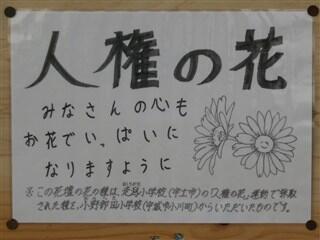 人権の花
みなさんの心も
お花でいっぱいに
なりますように
※この花壇の花の種は、走潟小学校(宇土市)の「人権の花」運動で採取
された種を、小野部田小学校(宇城市小川町)からいただいたものです。